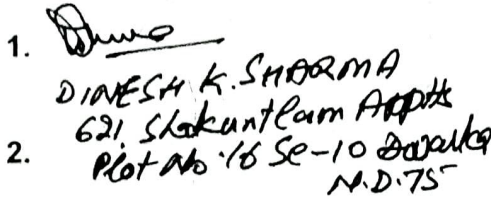 1.
DINESH K. SHARMA
621, Shakuntlam Appts
2. Plot No. 16 Se-10 Dwarka
N.D.75